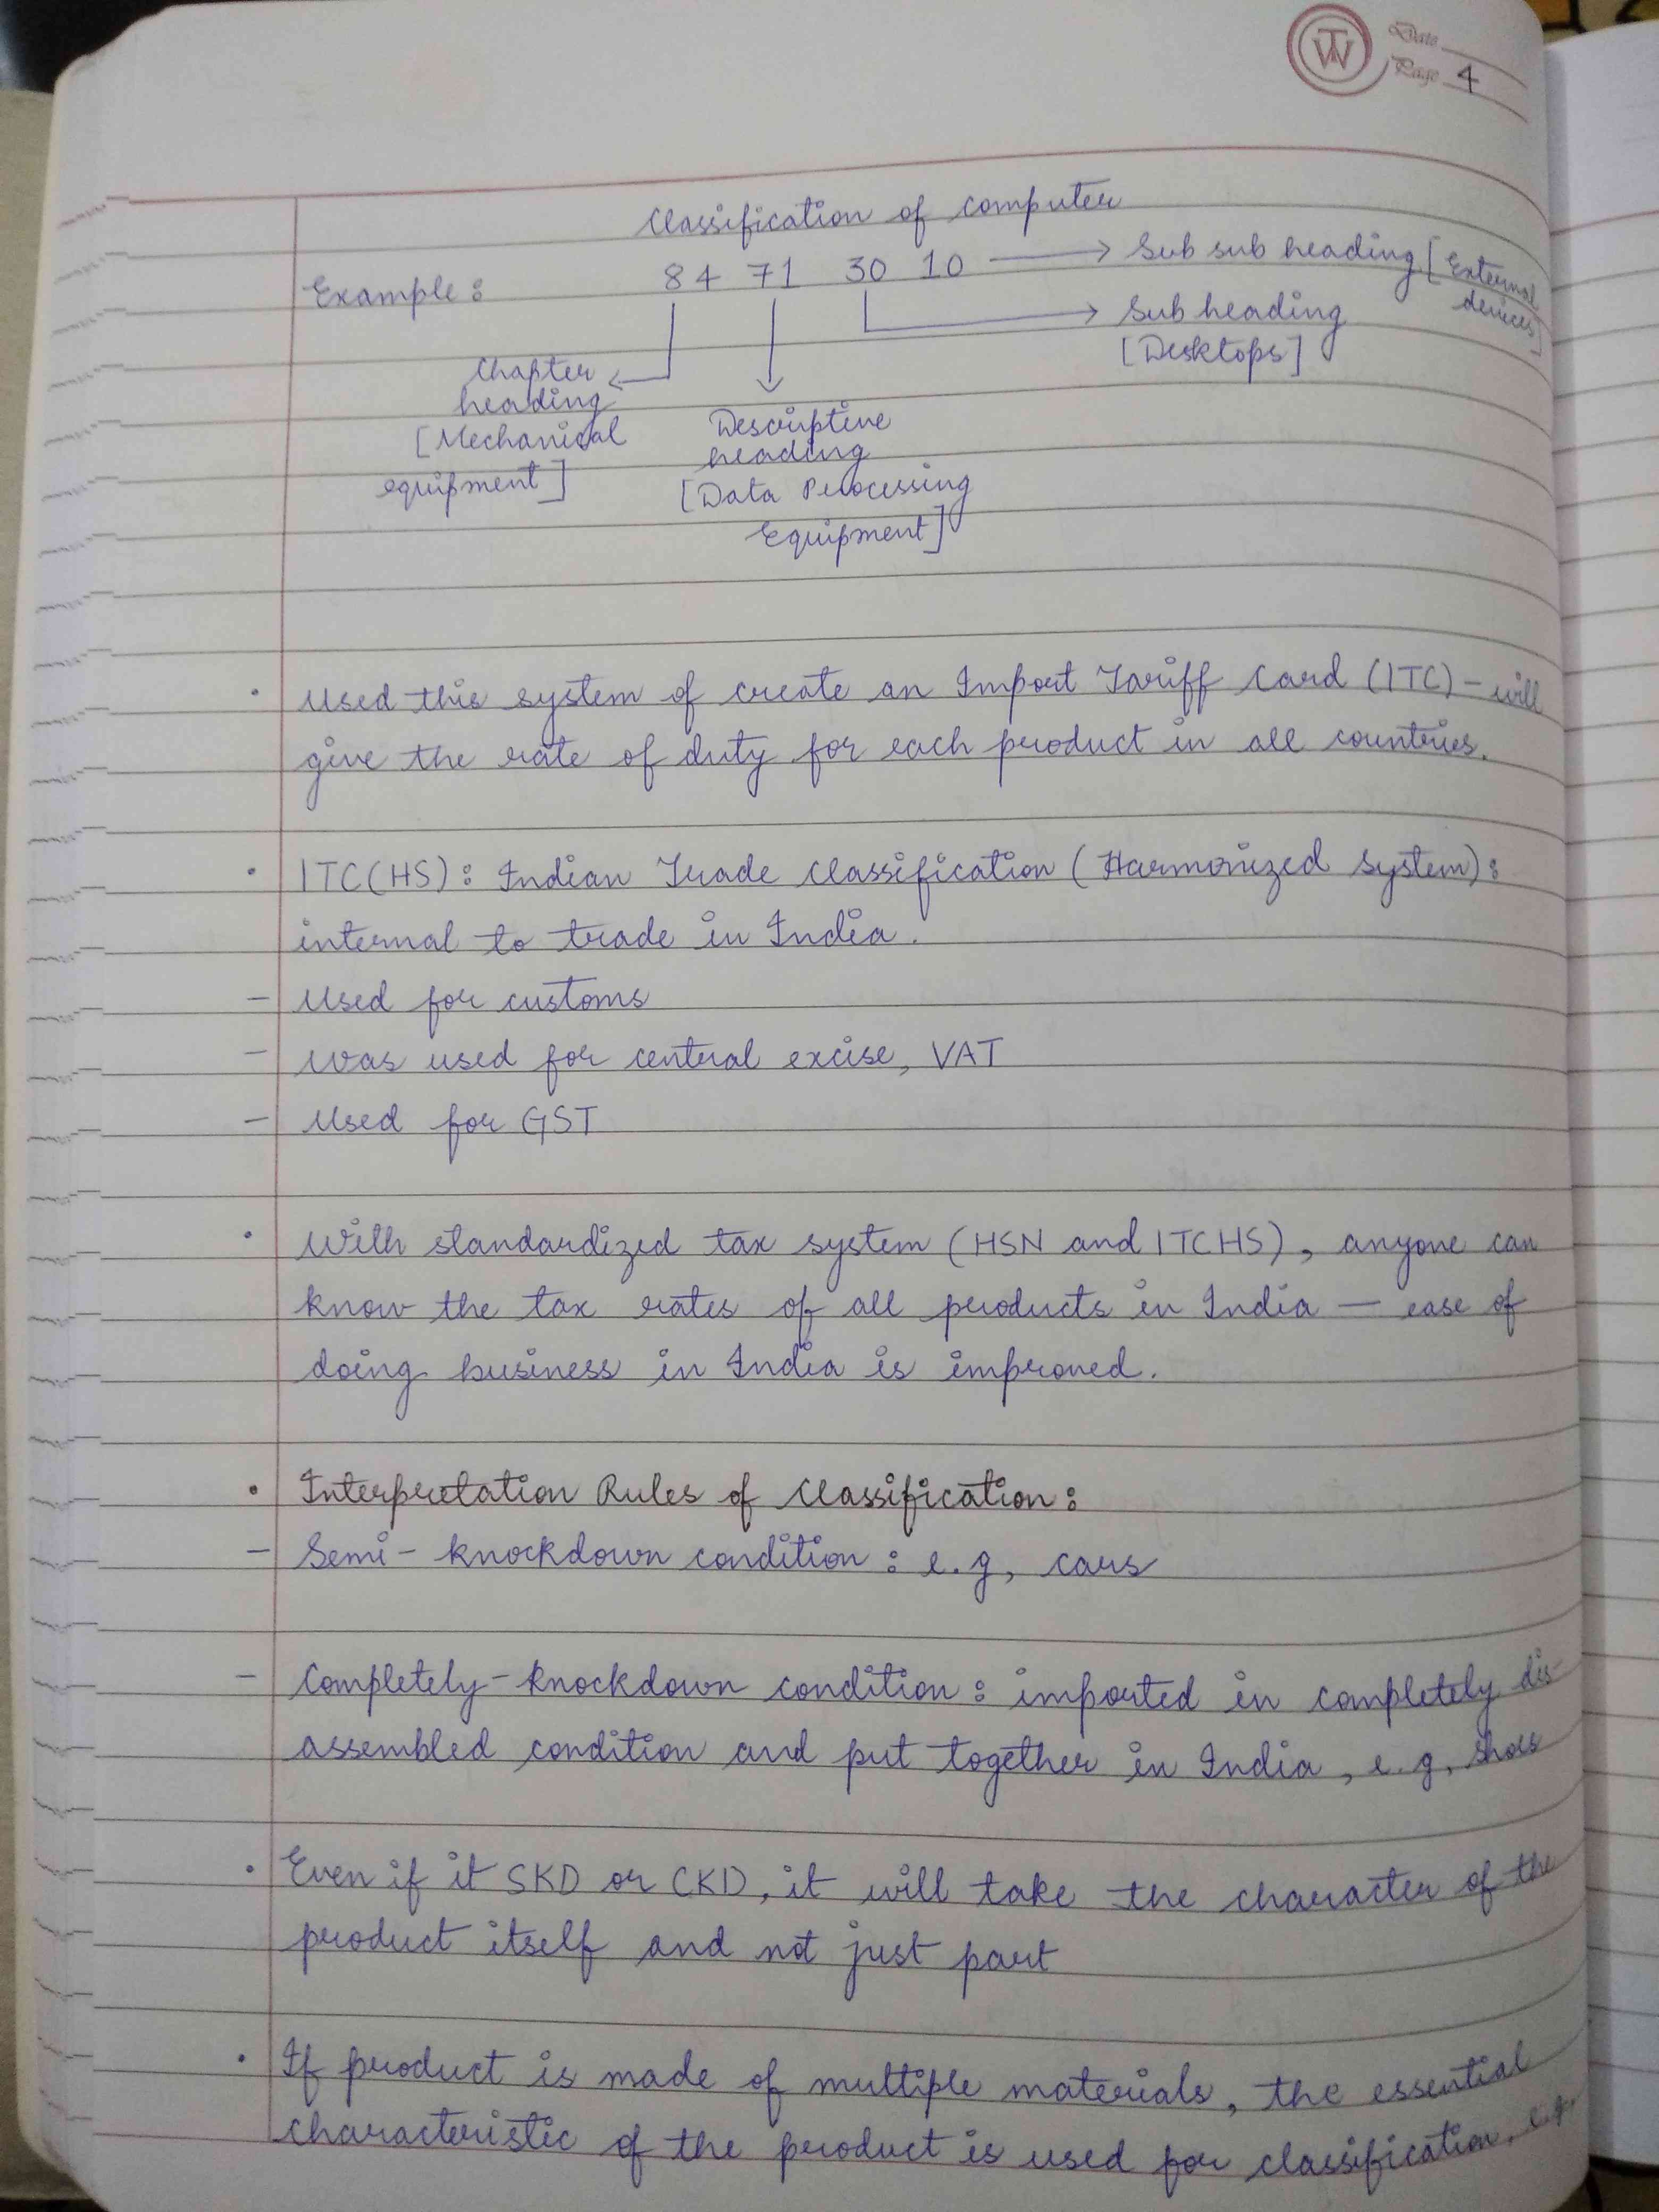 TW
Date
Page 4
Classification of computer
Example : 84 71 30 10 → Sub sub heading [External devices]
Sub heading
[Desktops]
Chapter
heading
[Mechanical
equipment]
Descriptive
heading
[Data Processing
Equipment]
• Used this system of create an Import Tariff Card (ITC) – will
give the rate of duty for each product in all countries.
• ITC(HS): Indian Trade Classification (Harmonized System):
internal to trade in India.
– Used for customs
– Was used for central excise, VAT
– Used for GST
• With standardized tax system (HSN and ITCHS), anyone can
know the tax rates of all products in India – ease of
doing business in India is improved.
• Interpretation Rules of Classification:
– Semi-knockdown condition : e.g, cars
– Completely-knockdown condition : imported in completely dis-
assembled condition and put together in India, e.g, shoes
• Even if it SKD or CKD, it will take the character of the
product itself and not just part
• If product is made of multiple materials, the essential
characteristic of the product is used for classification, e.g,